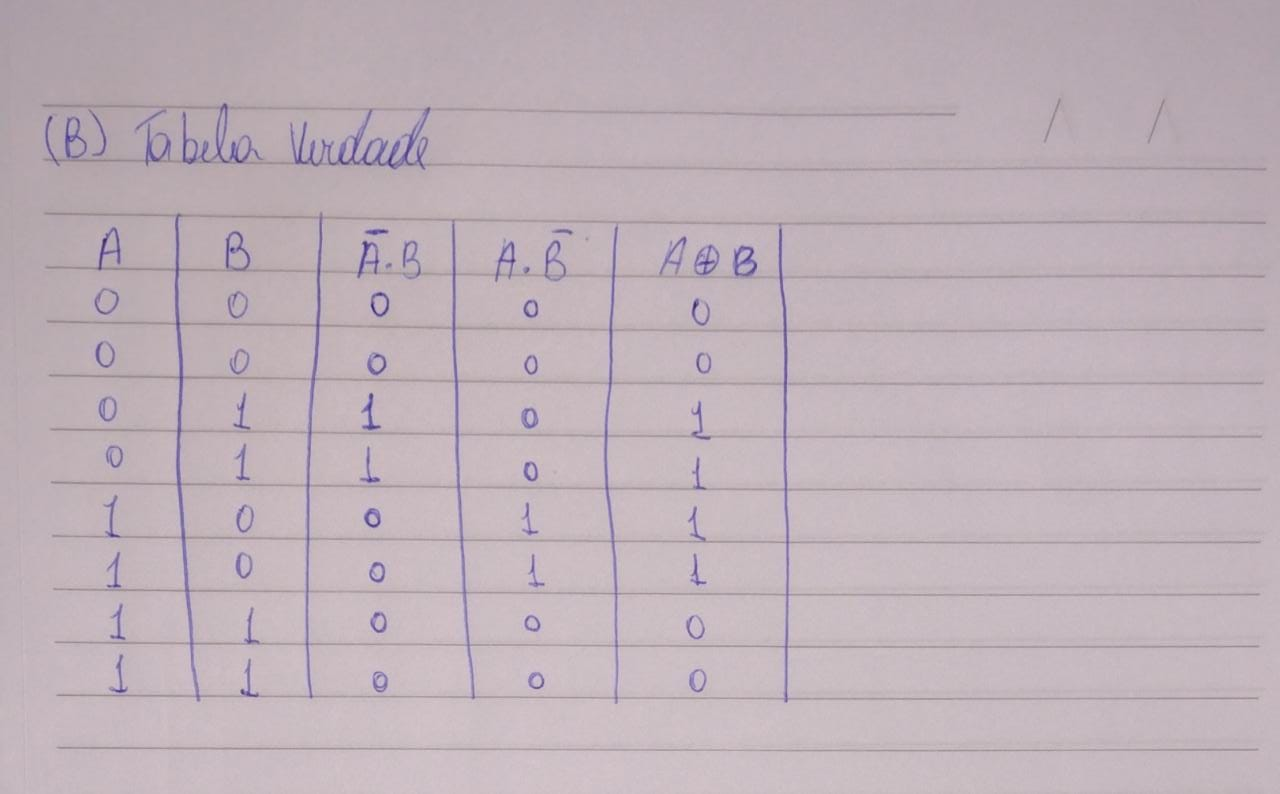 (B) Tabela Verdade
A B Ā.B A.B̄ A⊕B
0 0 0 0 0
0 0 0 0 0
0 1 1 0 1
0 1 1 0 1
1 0 0 1 1
1 0 0 1 1
1 1 0 0 0
1 1 0 0 0